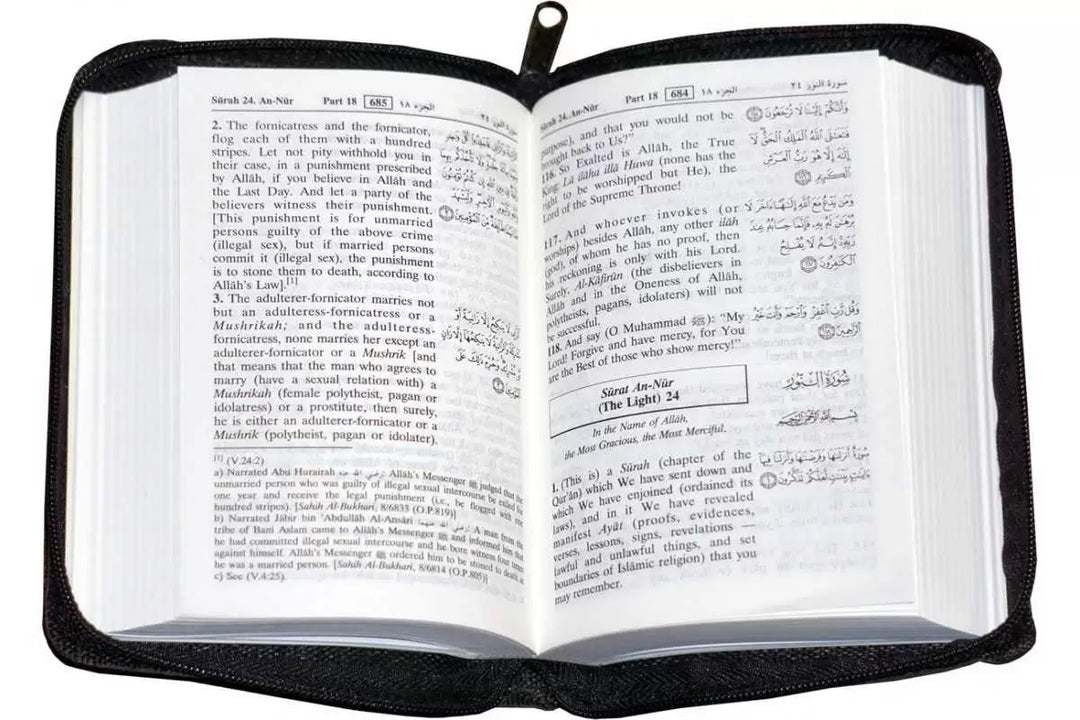 Sûrah 24. An-Nûr Part 18 684 الجزء ١٨ سورة النور ٢٤
purpose), and that you would not be
brought back to Us?"
116. So Exalted is Allâh, the True
King: Lâ ilâha illâ Huwa (none has the
right to be worshipped but He), the
Lord of the Supreme Throne!
117. And whoever invokes (or
worships) besides Allâh, any other ilâh
(god), of whom he has no proof, then
his reckoning is only with his Lord.
Surely, Al-Kâfirûn (the disbelievers in
Allâh and in the Oneness of Allâh,
polytheists, pagans, idolaters) will not
be successful.
118. And say (O Muhammad ﷺ): "My
Lord! Forgive and have mercy, for You
are the Best of those who show mercy!"
وَأَنَّكُمْ إِلَيْنَا لَا تُرْجَعُونَ
فَتَعَالَى اللَّهُ الْمَلِكُ الْحَقُّ لَا
إِلَهَ إِلَّا هُوَ رَبُّ الْعَرْشِ
الْكَرِيمِ
وَمَن يَدْعُ مَعَ اللَّهِ إِلَهًا آخَرَ لَا
بُرْهَانَ لَهُ بِهِ فَإِنَّمَا حِسَابُهُ عِندَ
رَبِّهِ إِنَّهُ لَا يُفْلِحُ
الْكَافِرُونَ
وَقُل رَّبِّ اغْفِرْ وَارْحَمْ وَأَنتَ خَيْرُ
الرَّاحِمِينَ
Sûrat An-Nûr
(The Light) 24
سُورَةُ النُّورِ
In the Name of Allâh,
the Most Gracious, the Most Merciful.
بِسْمِ اللَّهِ الرَّحْمَنِ الرَّحِيمِ
1. (This is) a Sûrah (chapter of the
Qur'ân) which We have sent down and
which We have enjoined (ordained its
laws), and in it We have revealed
manifest Ayât (proofs, evidences,
verses, lessons, signs, revelations —
lawful and unlawful things, and set
boundaries of Islâmic religion) that you
may remember.
سُورَةٌ أَنزَلْنَاهَا وَفَرَضْنَاهَا وَأَنزَلْنَا فِيهَا
آيَاتٍ بَيِّنَاتٍ لَّعَلَّكُمْ تَذَكَّرُونَ
Sûrah 24. An-Nûr Part 18 685 الجزء ١٨
2. The fornicatress and the fornicator,
flog each of them with a hundred
stripes. Let not pity withhold you in
their case, in a punishment prescribed
by Allâh, if you believe in Allâh and
the Last Day. And let a party of the
believers witness their punishment.
[This punishment is for unmarried
persons guilty of the above crime
(illegal sex), but if married persons
commit it (illegal sex), the punishment
is to stone them to death, according to
Allâh's Law].[1]
3. The adulterer-fornicator marries not
but an adulteress-fornicatress or a
Mushrikah; and the adulteress-
fornicatress, none marries her except an
adulterer-fornicator or a Mushrik [and
that means that the man who agrees to
marry (have a sexual relation with) a
Mushrikah (female polytheist, pagan or
idolatress) or a prostitute, then surely,
he is either an adulterer-fornicator or a
Mushrik (polytheist, pagan or idolater).
[1] (V.24:2)
a) Narrated Abu Hurairah رضي الله عنه: Allâh's Messenger ﷺ judged that the
unmarried person who was guilty of illegal sexual intercourse be exiled for
one year and receive the legal punishment (i.e., be flogged with one
hundred stripes). [Sahih Al-Bukhari, 8/6833 (O.P.819)]
b) Narrated Jâbir bin 'Abdullâh Al-Ansâri رضي الله عنهما: A man from the
tribe of Bani Aslam came to Allâh's Messenger ﷺ and informed him that
he had committed illegal sexual intercourse and he bore witness four times
against himself. Allâh's Messenger ﷺ ordered him to be stoned to death as
he was a married person. [Sahih Al-Bukhari, 8/6814 (O.P.805)]
c) See (V.4:25).